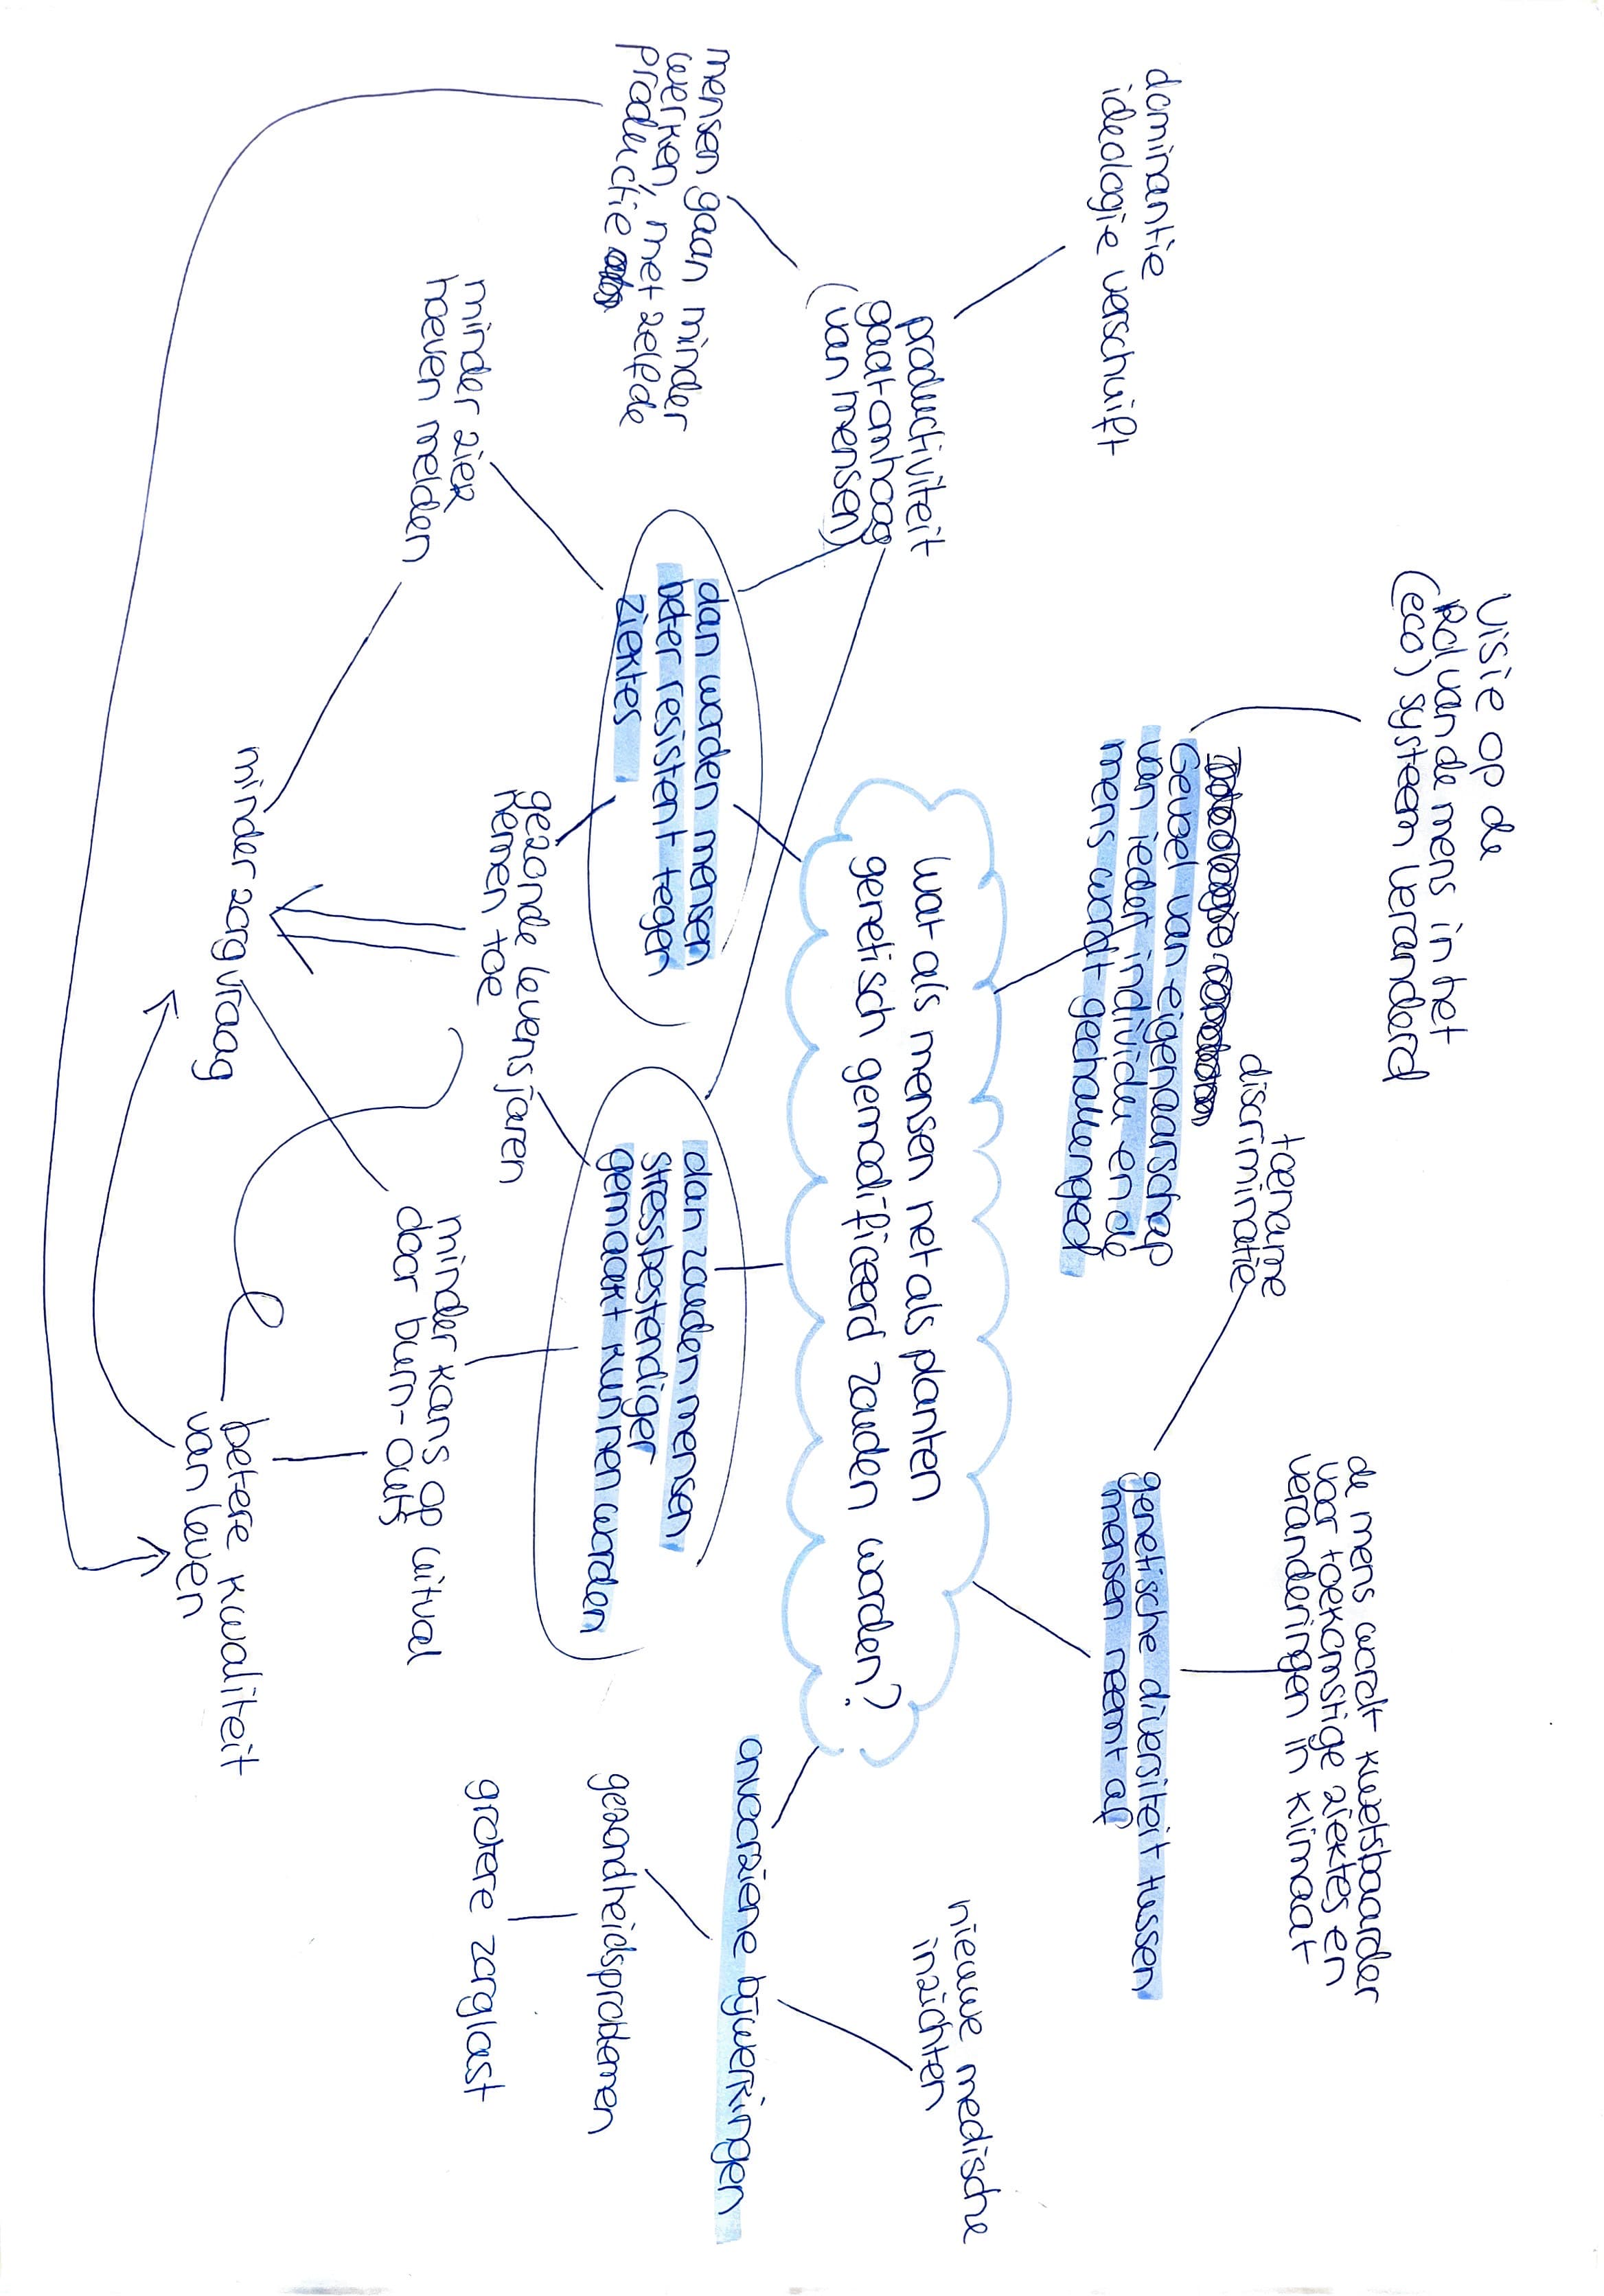 Visie op de
Rol van de mens in het
(eco) systeem veranderd
dominantie
ideologie verschuift
toename
discriminatie
de mens wordt kwetsbaarder
voor toekomstige ziektes en
veranderingen in klimaat
Gevoel van eigenaarschap
van ieder individu en de
mens wordt gechallenged
genetische diversiteit tussen
mensen neemt af
productiviteit
gaat omhoog
(van mensen)
wat als mensen net als planten
genetisch gemodificeerd zouden worden?
nieuwe medische
inzichten
mensen gaan minder
werken, met zelfde
productie
dan worden mensen
beter resistent tegen
ziektes
dan zouden mensen
stressbestendiger
gemaakt kunnen worden
onvoorziene bijwerkingen
gezondheidsproblemen
grotere zorglast
minder ziek
hoeven melden
gezonde levensjaren
nemen toe
minder kans op uitval
door burn-outs
minder zorgvraag
betere kwaliteit
van leven